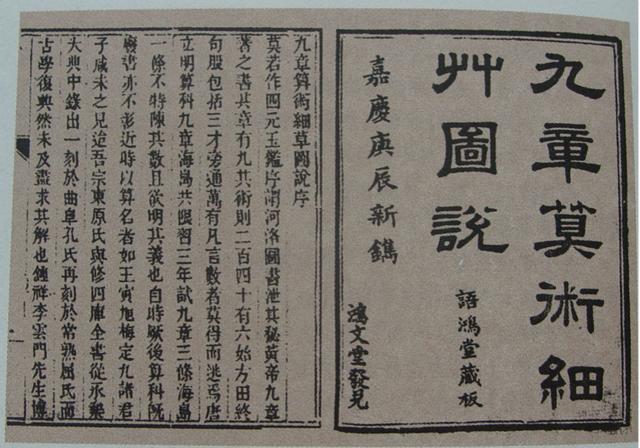 九章算術細
艸圖說
嘉慶庚辰新鐫
語鴻堂藏板
鴻文堂發兌
九章算術細草圖說序
莫若作四元玉鑑序謂河洛圖書泄其秘黃帝九章
著之書其章有九其術則二百四十有六始方田終
句股包括三才旁通萬有凡言數者莫得而逃焉唐
立明算科九章海島共限習三年試九章三條海島
一條不特陳其數且欲明其義也自時厥後算科既
廢書亦不彰近時以算名者如王寅旭梅定九諸君
子咸未之見迨吾宗東原氏與修四庫全書從永樂
大典中錄出一刻於曲阜孔氏再刻於常熟屈氏而
古學復興然未及盡求其解也鍾祥李雲門先生博